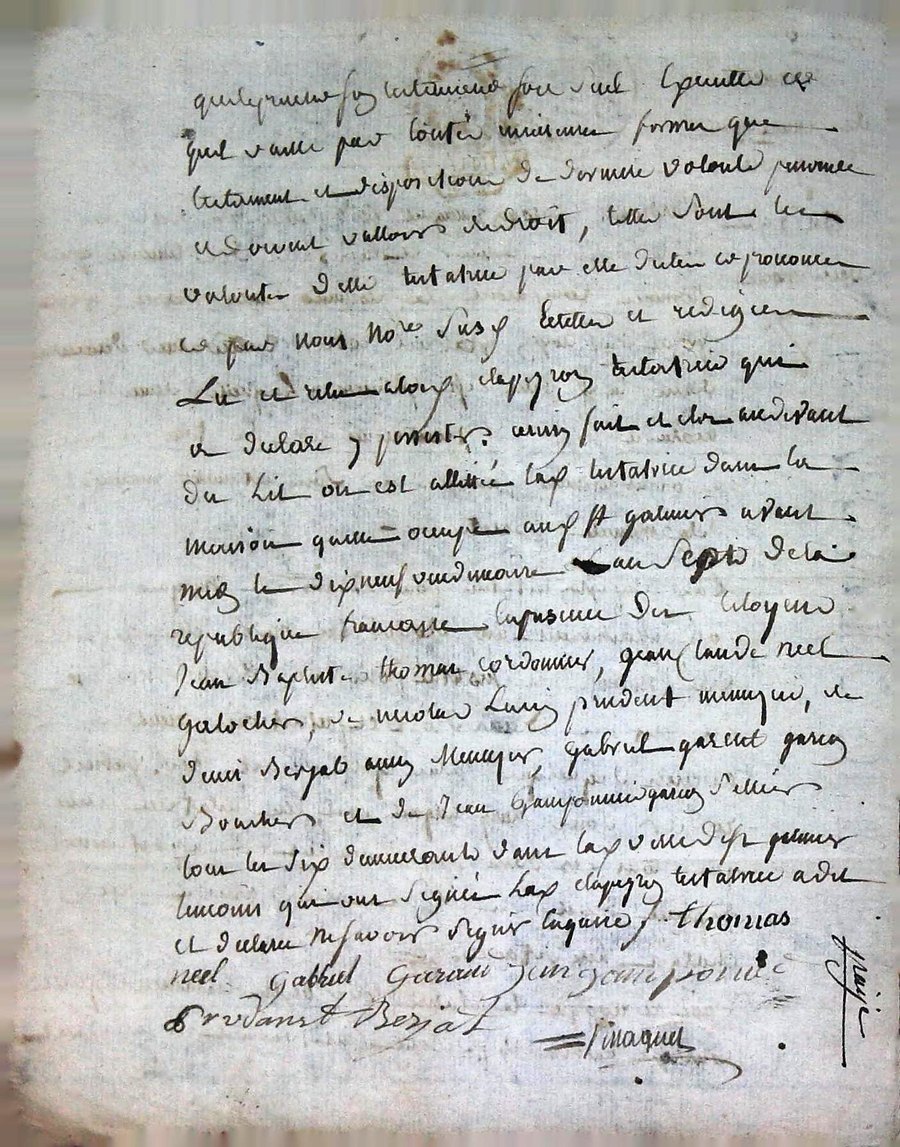 que le present testament soit seul executé et
qu'il vaille par toutes meilleures formes que
testament et disposition de derniere volonté peuvent
et doivent valloir de droit, telles sont les
volontés delle testatrice par elle dictées et prononcées
et par nous No.re susd. et redigées
Lu et relu a lad. clapeyron testatrice qui
a declaré y persister. ainsy fait et clos audevant
du Lit ou est allittée lad. testatrice dans la
maison quelle occupe aud. St galmier avant
midy le dixneuf vendemiaire Lan Sept de la
republique francaise en presence des Citoyens
Jean Baptiste thomas cordonnier, jean Claude neel
galocher, de nicolas prudent, de
denis Berjat menager, gabriel garent garcon
Boucher et de Jean janponnie garcon Sellier
tous les six demeurants dans lad. ville de St galmier
temoins qui ont signés Lad. clapeyron testatrice a dit
et declaré ne savoir signer Enquise / thomas
neel gabriel Garand jean janponnie
Prudanst Berjat
Pinaquet